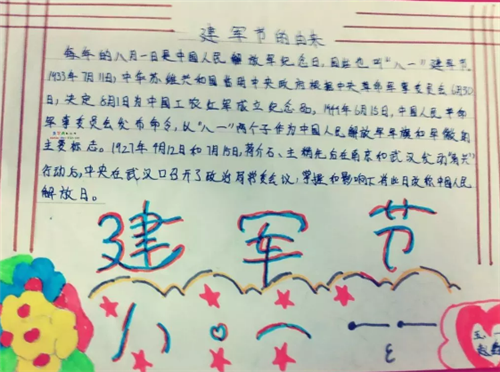 建军节的由来
每年的八月一日是中国人民解放军纪念日,因此也叫"八一"建军节
1933年7月11日,中华苏维共和国临时中央政府根据中央革命军事委员会6月30
日,决定8月1日为中国工农红军成立纪念日。1949年6月15日,中国人民革命
军事委员会发布命令,以"八一"两个子作为中国人民解放军军旗和军徽的
主要标志。1927年4月12日和7月15日,蒋介石、主精先后在南京和武汉发动
行动后,中央在武汉口召开了政治局常委会议,掌握和影响下将此日改称中国人民
解放日。
建军节
八 一